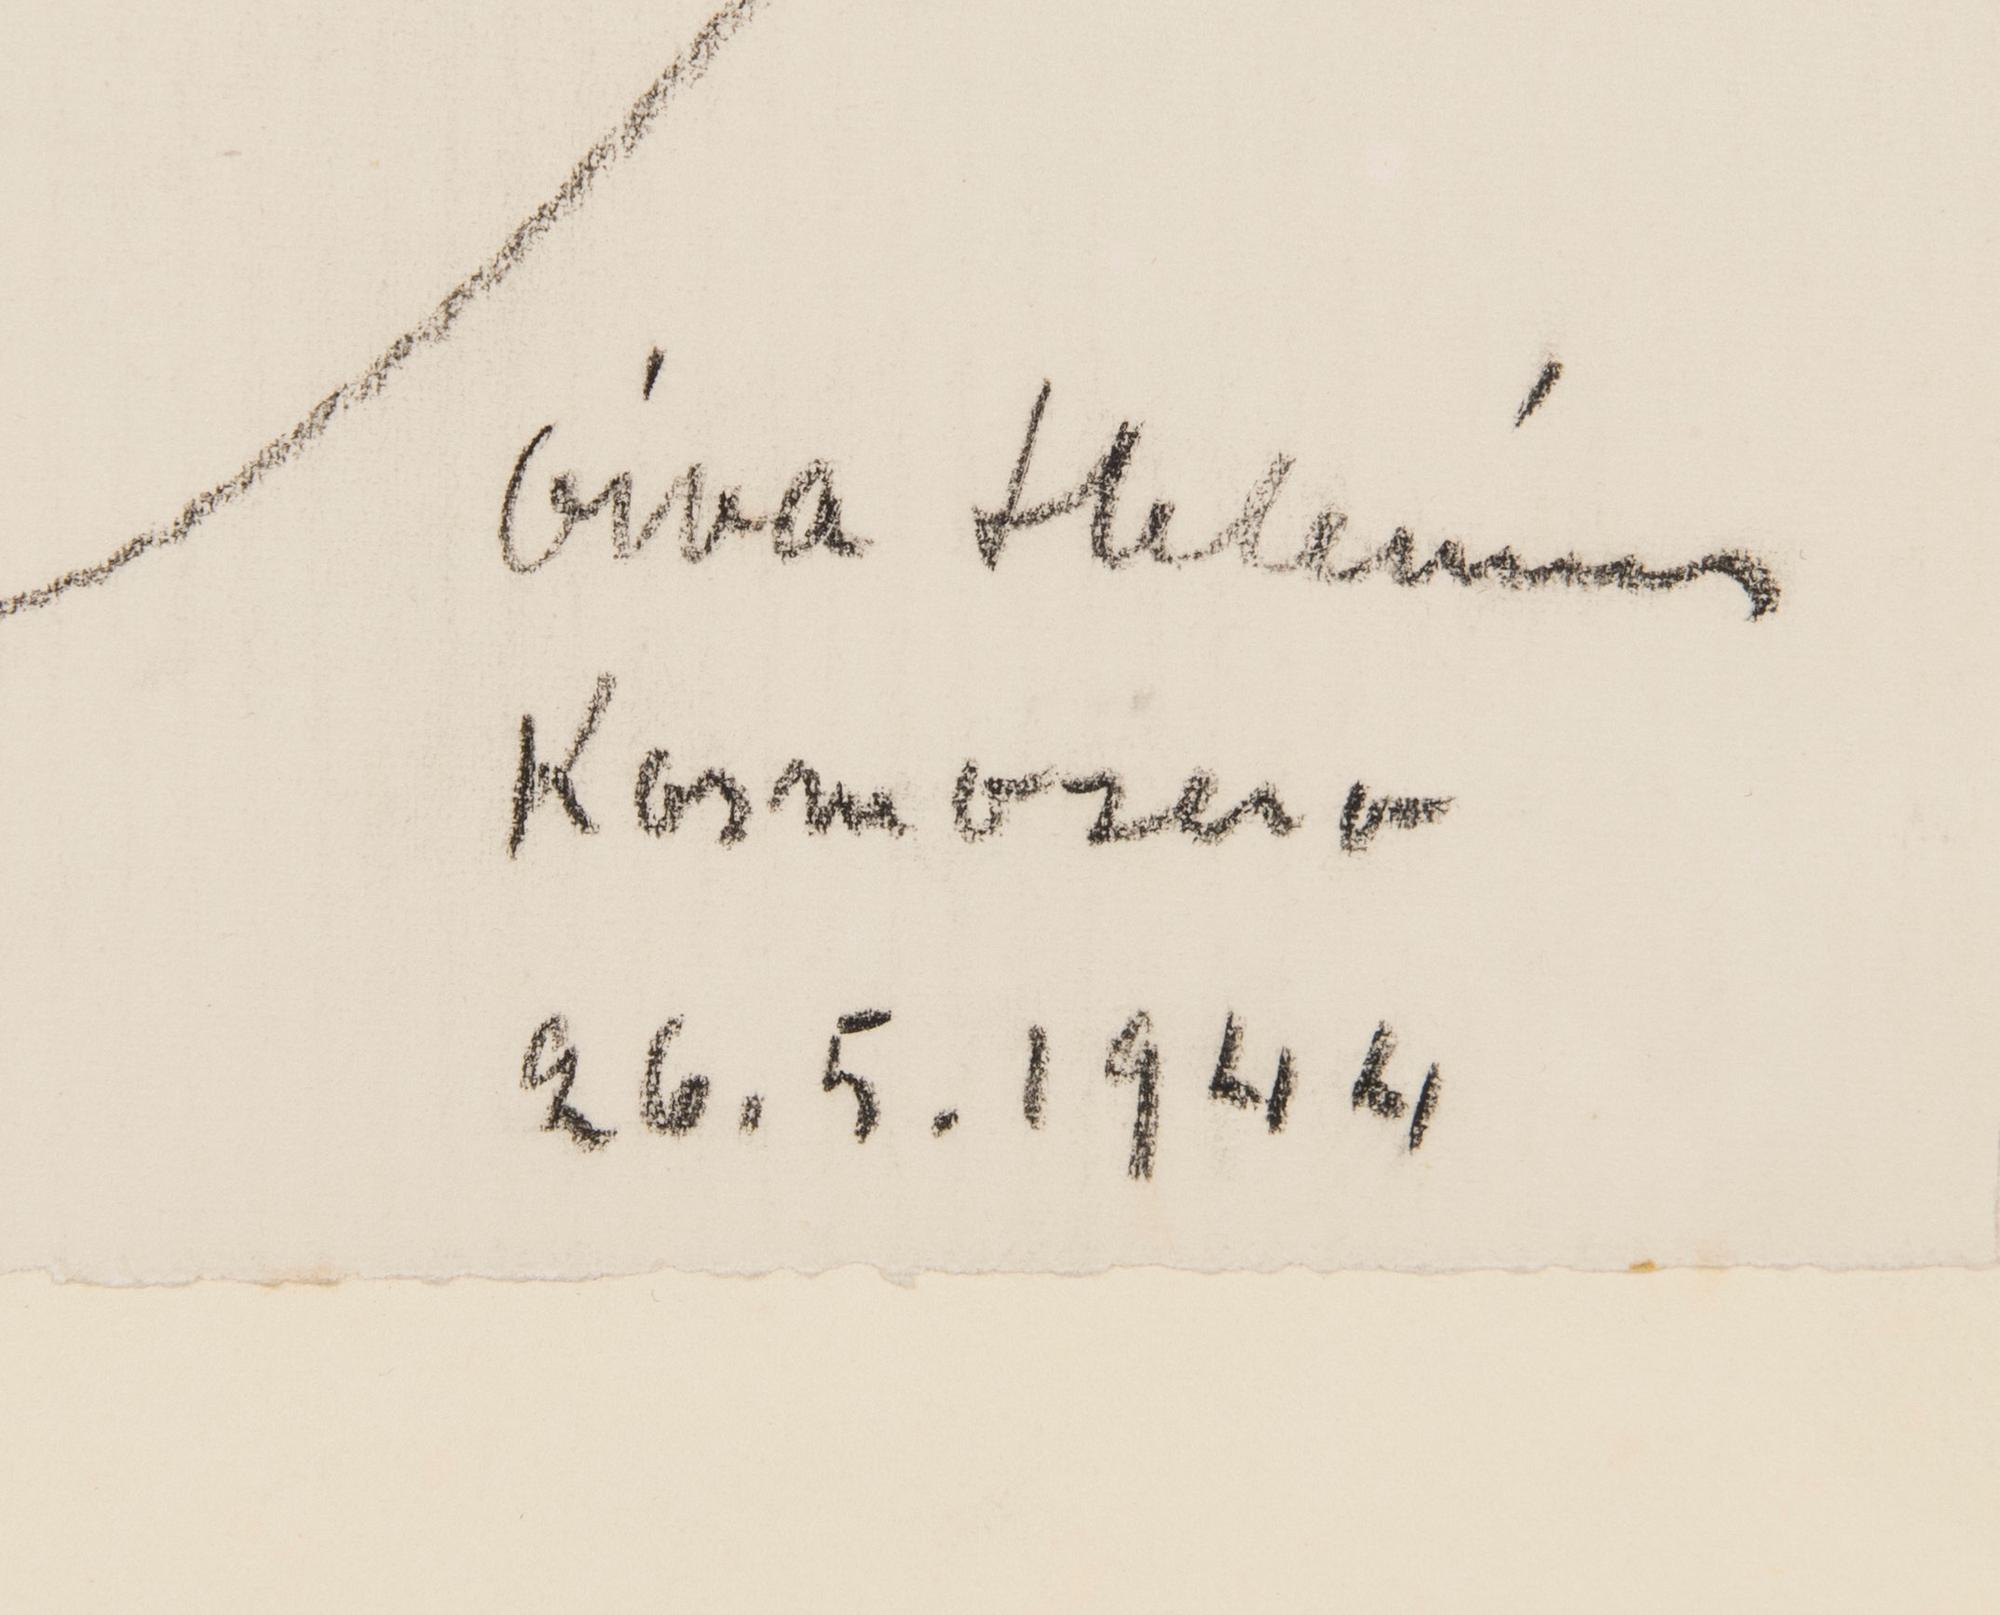 Oiva Helenius
Kosmozero
26.5.1944